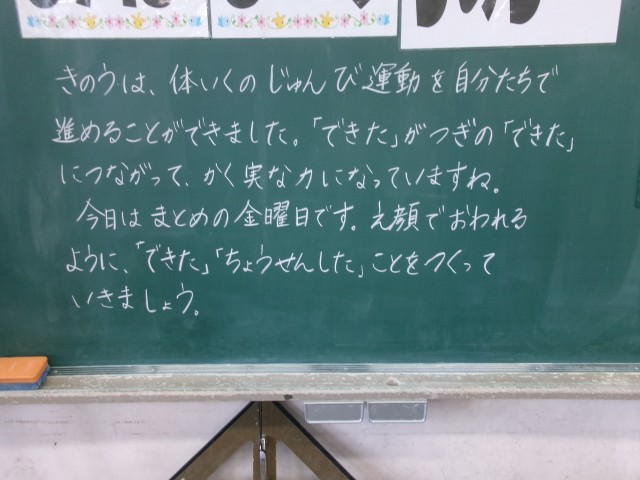 きのうは、体いくのじゅんび運動を自分たちで
進めることができました。「できた」がつぎの「できた」
につながって、かく実な力になっていますね。
今日はまとめの金曜日です。え顔でおわれる
ように、「できた」「ちょうせんした」ことをつくって
いきましょう。